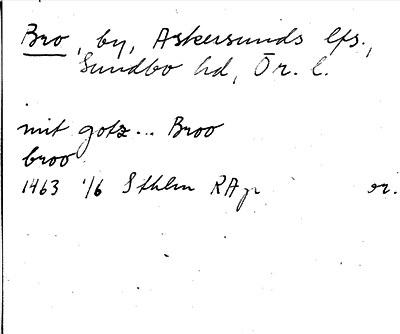 Bro, by, Askersunds lfs.,
Sundbo hd, Ör. l.
mit gotz... Broo
broo
1463 1/6 Sthlm RAp or.